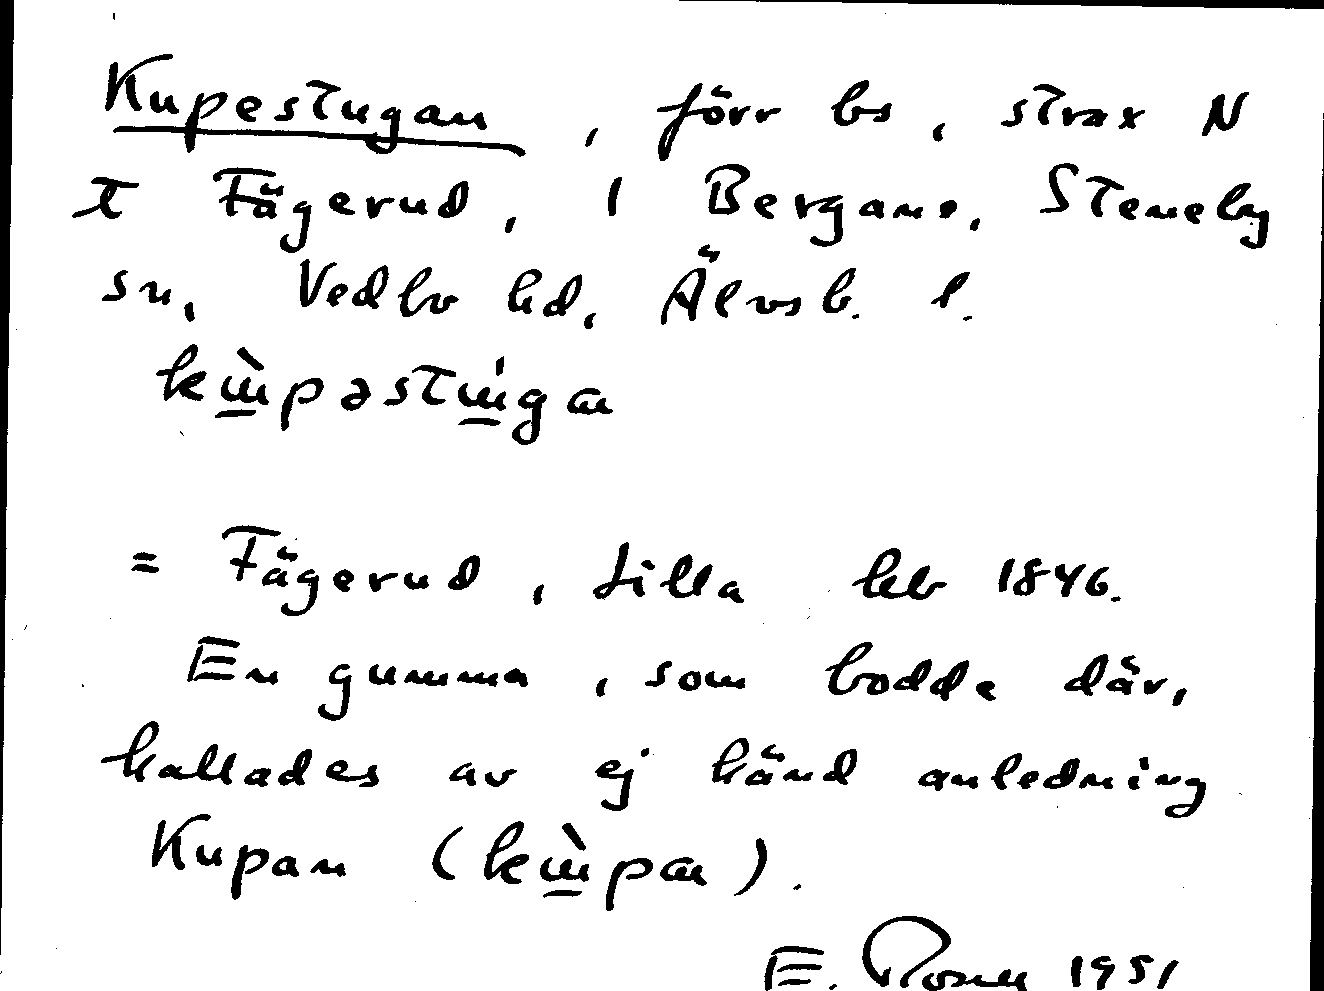 Kupestugan, förr bs, strax N
t Fägerud, 1 Bergane, Steneby
sn, Vedbo hd, Älvsb. l.
= Fägerud, Lilla hlr 1846.
En gumma, som bodde där,
kallades av ej känd anledning
Kupan
E. 1951